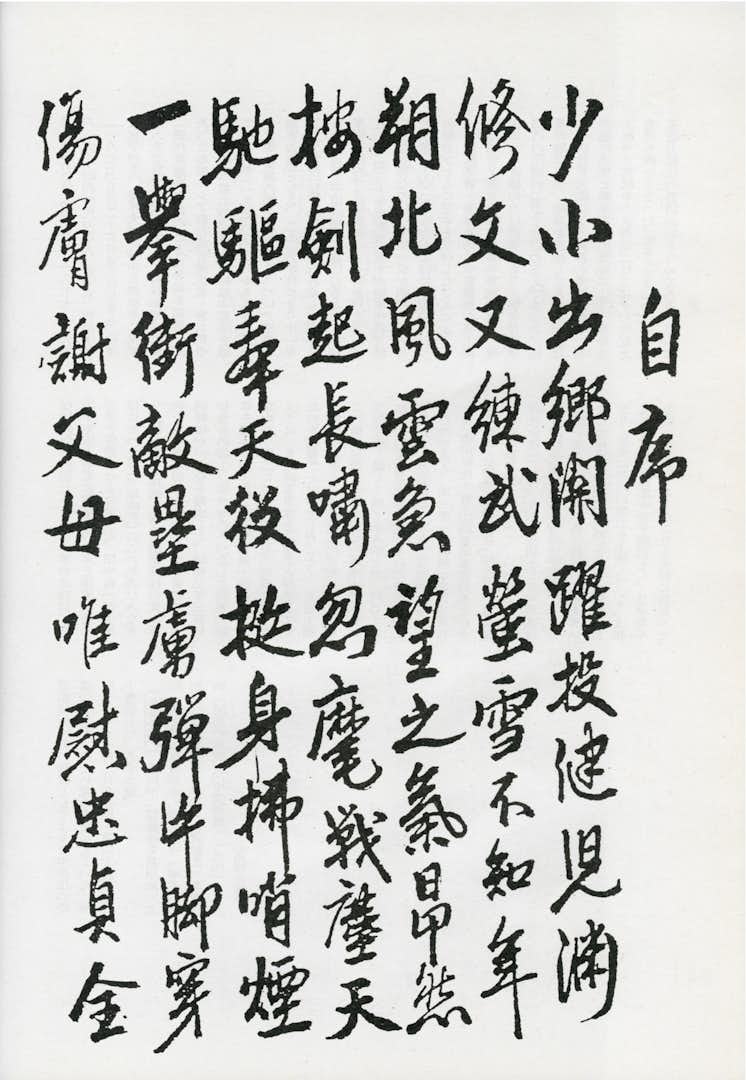 自序
少小出鄉関躍投健児淵
修文又練武螢雪不知年
朔北風雲急望之氣昂然
按剣起長嘯忽麾戦塵天
馳驅奉天役挺身掃哨煙
一擧衝敵塁虜弾片脚穿
傷膚謝父母唯慰忠貞全